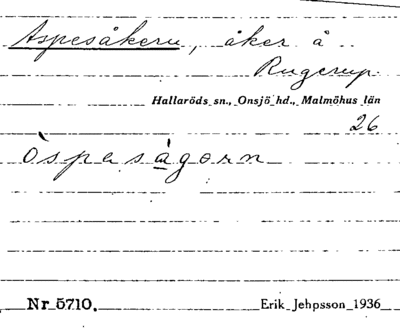 Aspesåkern, åker å
Rugerup.
Hallaröds sn., Onsjö hd., Malmöhus län
26
òspasàgorn
Nr 5710.
Erik Jehpsson 1936